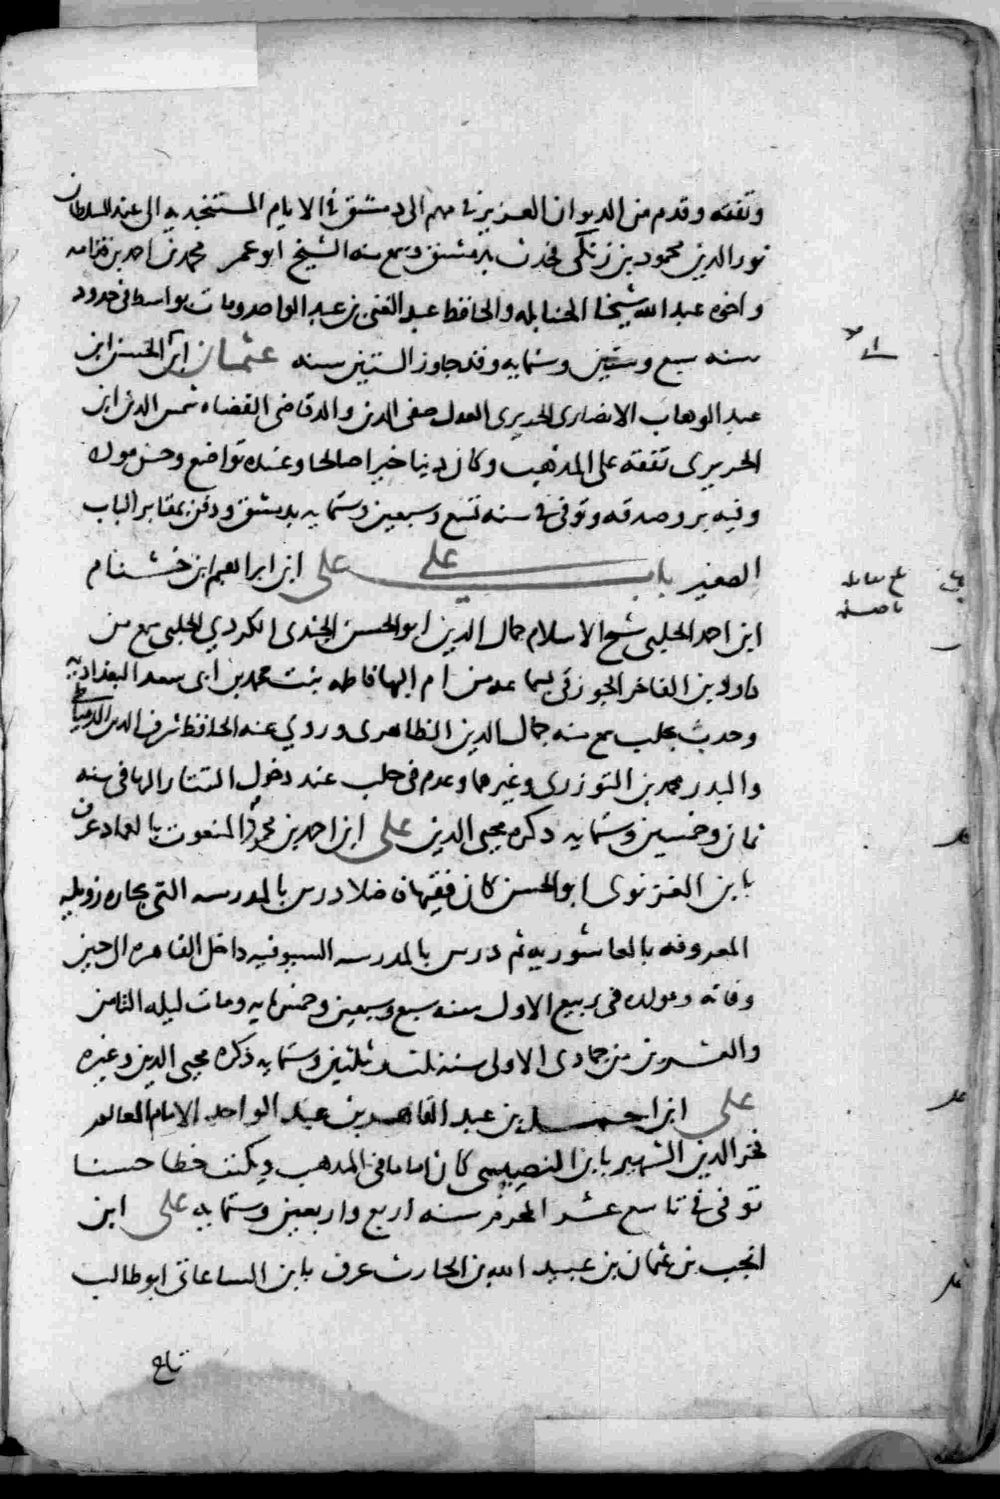 وتفقه وقدم من الديوان العزيز في مهم الى دمشق في الايام المستنجديه الى عند السلطان
نور الدين محمود بن زنكى فحدث بدمشق وسمع منه الشيخ ابو عمر محمد بن احمد بن قدامه
واخوه عبد الله شيخا الحنابله والحافظ عبد الغنى بن عبد الواحد ومات بواسط في حدود
سنه سبع وستين وستمايه وقد جاوز الستين سنه عثمان ابن الحسن ابن
عبد الوهاب الانصارى الحريرى العدل صفى الدين والد قاضى القضاه شمس الدين ابن
الحريرى تفقه على المذهب وكان دينا خيرا صالحا وعنده تواضع وحسن مودد
وفيه بر وصدقه وتوفى في سنه تسع وسبعين وستمايه بدمشق ودفن بمقابر الباب
الصغير باب على على ابن ابراهيم ابن خشنام
ابن احمد الحلبى شيخ الاسلام جمال الدين ابو الحسن الجندى الكردي الحلبى سمع من
داود بن الفاخر الجوزقى بسماعه من ام البها فاطمه بنت محمد بن ابى سعد البغداديه
وحدث بحلب سمع منه جمال الدين الظاهرى وروي عنه الحافظ شرف الدين الدمياطى
والبدر محمد بن التوزرى وغيرهما وعدم في حلب عند دخول التتار اليها في سنه
ثمان وخمسين وستمايه ذكره محيى الدين على ابن احمد بن محمود المنعوت بالعماد عرف
بابن الغزنوى ابو الحسن كان فقيها فاضلا درس بالمدرسه التى بحاره زويله
المعروفه بالعاشوريه ثم درس بالمدرسه السيوفيه داخل القاهره الى حين
وفاته ومولده في ربيع الاول سنه سبع وسبعين وخمسمايه ومات ليله الثامن
والعشرين من جمادى الاولى سنه ثلث وثلثين وستمايه ذكره محيى الدين وغيره
على ابن احمد بن عبد القاهر بن عبد الواحد الامام العالم
فخر الدين الشهير بابن النصيبى كان اماما في المذهب ويكتب خطا حسنا
توفى في تاسع عشر المحرم سنه اربع واربعين وستمايه على ابن
انجب بن عثمان بن عبيد الله بن الحارث عرف بابن الساعاتى ابو طالب
تاج